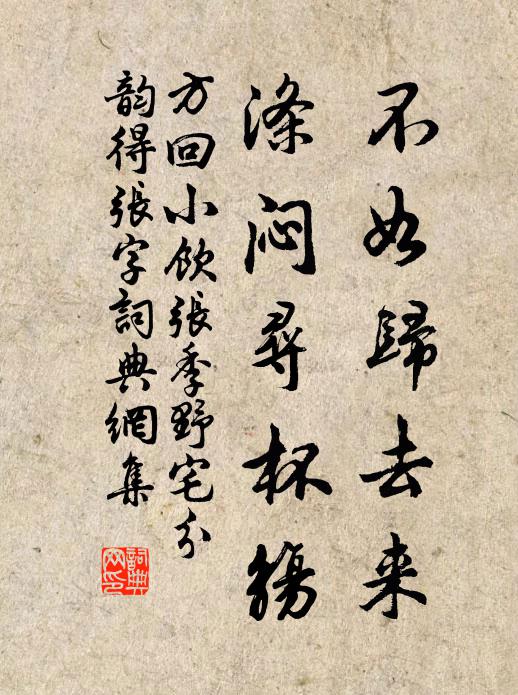 不如歸去来
滌悶尋杯觴
方回小飲張季野宅分
韵得張字詞典網集
詞典网印